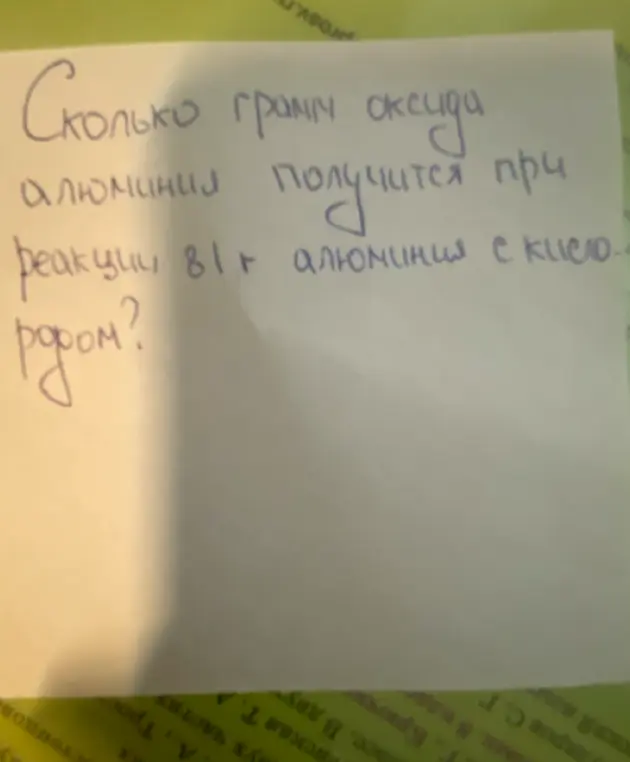 Сколько грамм оксида
алюминия получится при
реакции 81 г алюминия с кисло-
родом?